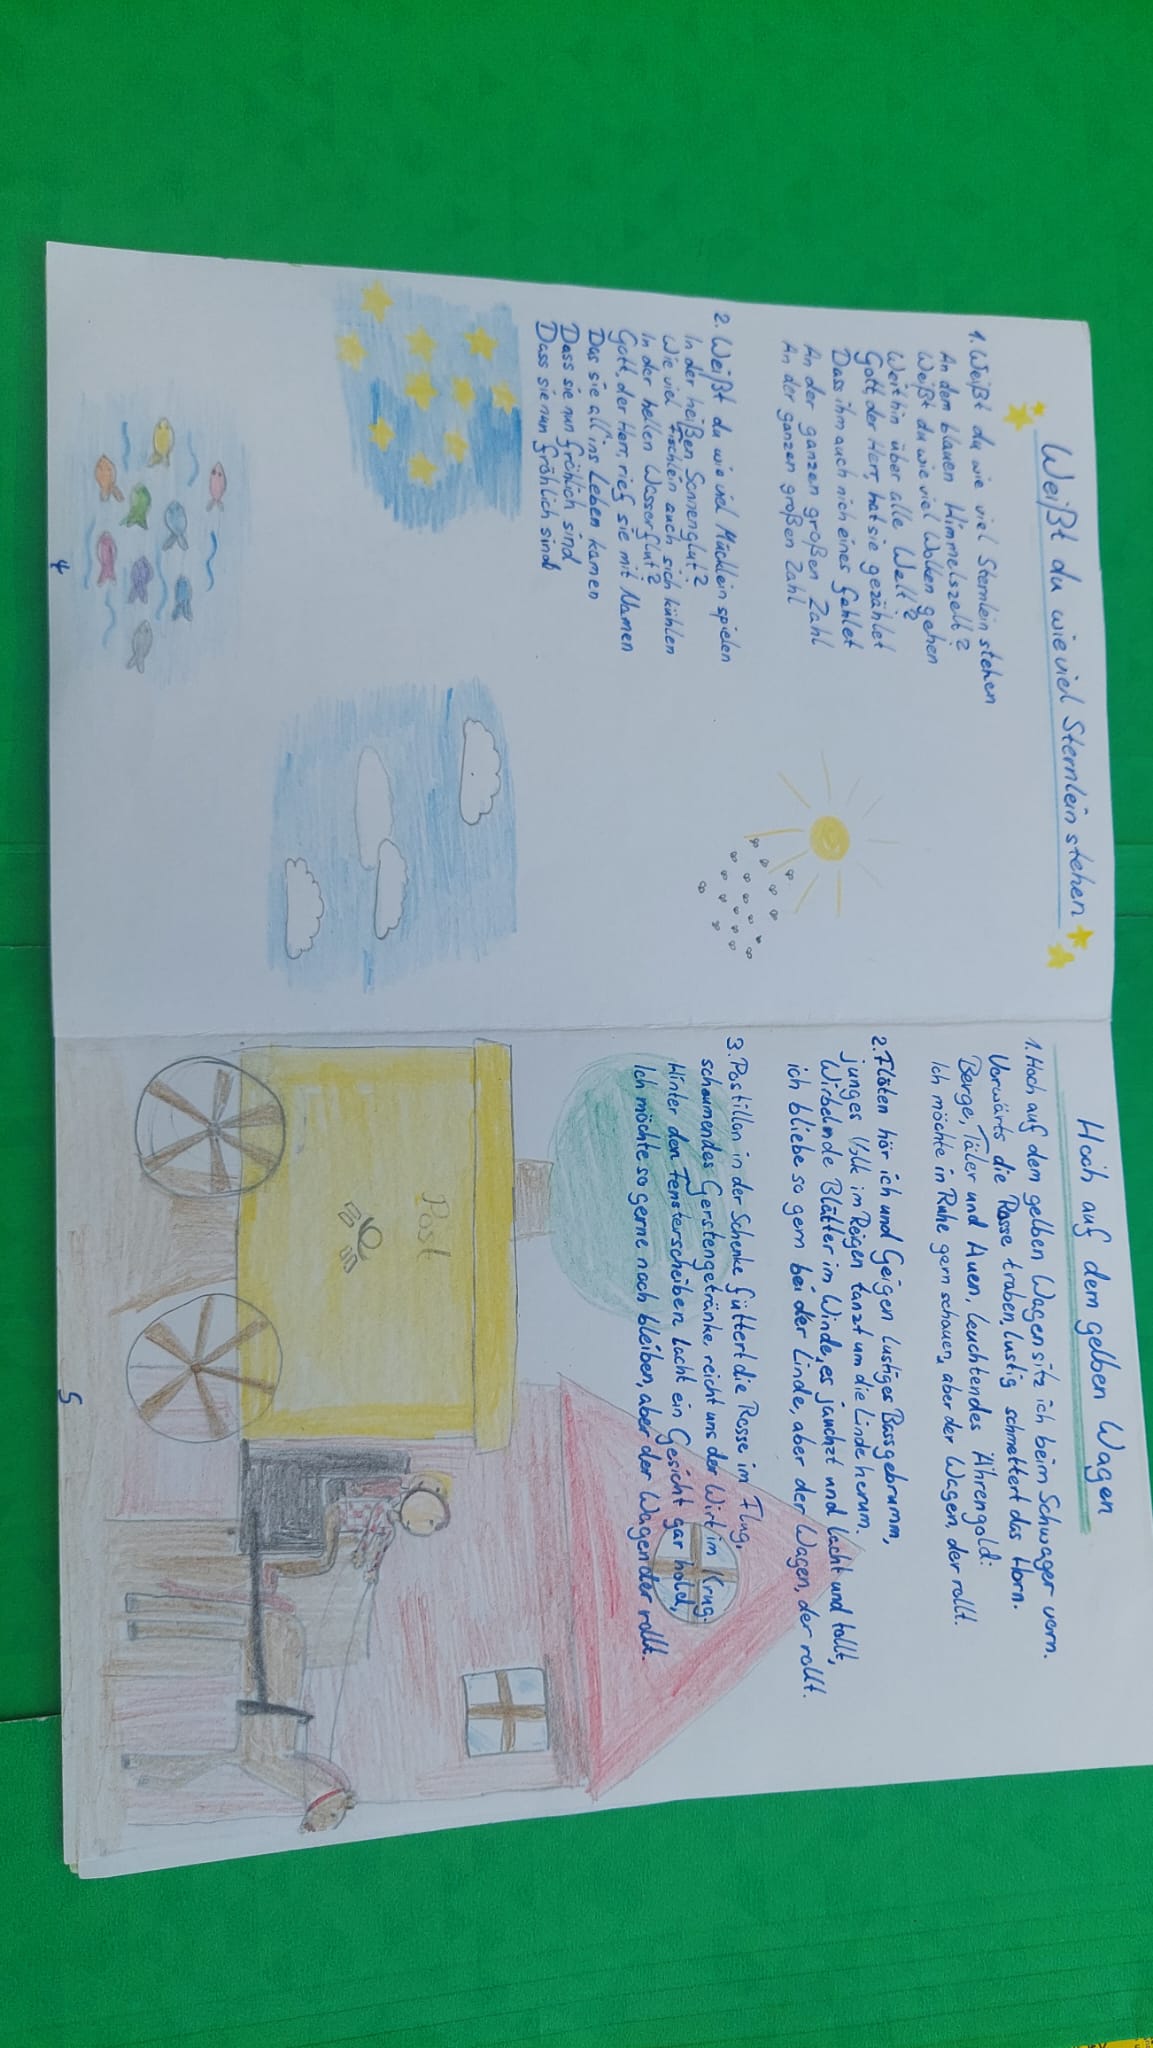 Weißt du wieviel Sternlein stehen
1. Weißt du wie viel Sternlein stehen
An dem blauen Himmelszelt?
Weißt du wie viel Wolken gehen
Weithin über alle Welt?
Gott, der Herr, hat sie gezählet
Dass ihm auch nich eines fehlet
An der ganzen großen Zahl
An der ganzen großen Zahl
2. Weißt du wie viel Mücklein spielen
In der heißen Sonnenglut?
Wie viel Fischlein auch sich kühlen
In der hellen Wasserflut?
Gott, der Herr, rief sie mit Namen
Das sie all ins Leben kamen
Dass sie nun fröhlich sind
Dass sie nun fröhlich sind
4
Hoch auf dem gelben Wagen
1. Hoch auf dem gelben Wagen sitz ich beim Schwager vorn.
Vorwärts die Rosse traben, lustig schmettert das Horn.
Berge, Täler und Auen, leuchtendes Ährengold:
Ich möchte in Ruhe gern schauen, aber der Wagen, der rollt.
2. Flöten hör ich und Geigen lustiges Bassgebrumm,
junges Volk im Reigen tanzt um die Linde herum.
Wirbelnde Blätter im Winde, es jauchzt und lacht und tollt,
ich bliebe so gern bei der Linde, aber der Wagen, der rollt.
3. Postillon in der Schenke füttert die Rosse im Flug,
schäumendes Gerstengetränke, reicht uns der Wirt im Krug.
Hinter den Fensterscheiben lacht ein Gesicht gar hold,
Ich möchte so gerne noch bleiben, aber der Wagen der rollt.
Post
5